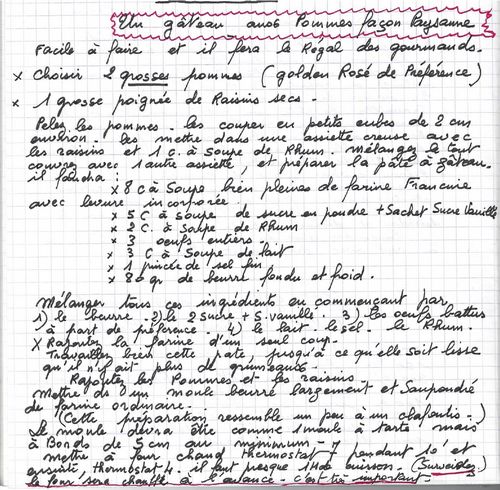 Un gâteau aux Pommes façon Paysanne
Facile à faire et il fera le Régal des gourmands.
x choisir 2 grosses pommes (golden Rosé de Préférence)
x 1 grosse poignée de Raisins secs.
Pelez les pommes. les couper en petits cubes de 2 cm
environ. les mettre dans une assiette creuse avec
les raisins et 1 c. à soupe de Rhum. mélangez le tout
couvrir avec 1 autre assiette, et préparer la pâte à gâteau.
il faudra :
x 8 c à Soupe bien pleines de farine Francine
avec levure incorporée.
x 5 C à soupe de sucre en poudre + Sachet Sucre Vanillé
x 2 C. à soupe de Rhum
x 3 oeufs entiers.
x 3 C à Soupe de lait
x 1 pincée de sel fin
x 80 gr de beurre fondu et froid.
Mélanger tous ces ingrédients en commençant par
1) le beurre. 2) le Sucre + S. vanillé. 3) les oeufs battus
à part de préférence. 4) le lait. le sel. le Rhum.
x Rajouter la farine d'un seul coup.
Travaillez bien cette pate, jusqu'à ce qu'elle soit lisse
qu'il n'y ait plus de grumeaux.
Rajoutez les Pommes et les raisins.
Mettre ds 1 moule beurré largement et Saupoudré
de farine ordinaire.
(Cette préparation ressemble un peu à un clafoutis.)
Le moule devra être comme 1 moule à tarte mais
à Bords de 5 cm au minimum -
mettre à four chaud thermostat 7 pendant 10' et
ensuite, thermostat 4. il faut presque 1H00 cuisson. (Surveillez)
le four sera chauffé à l'avance. c'est très important.